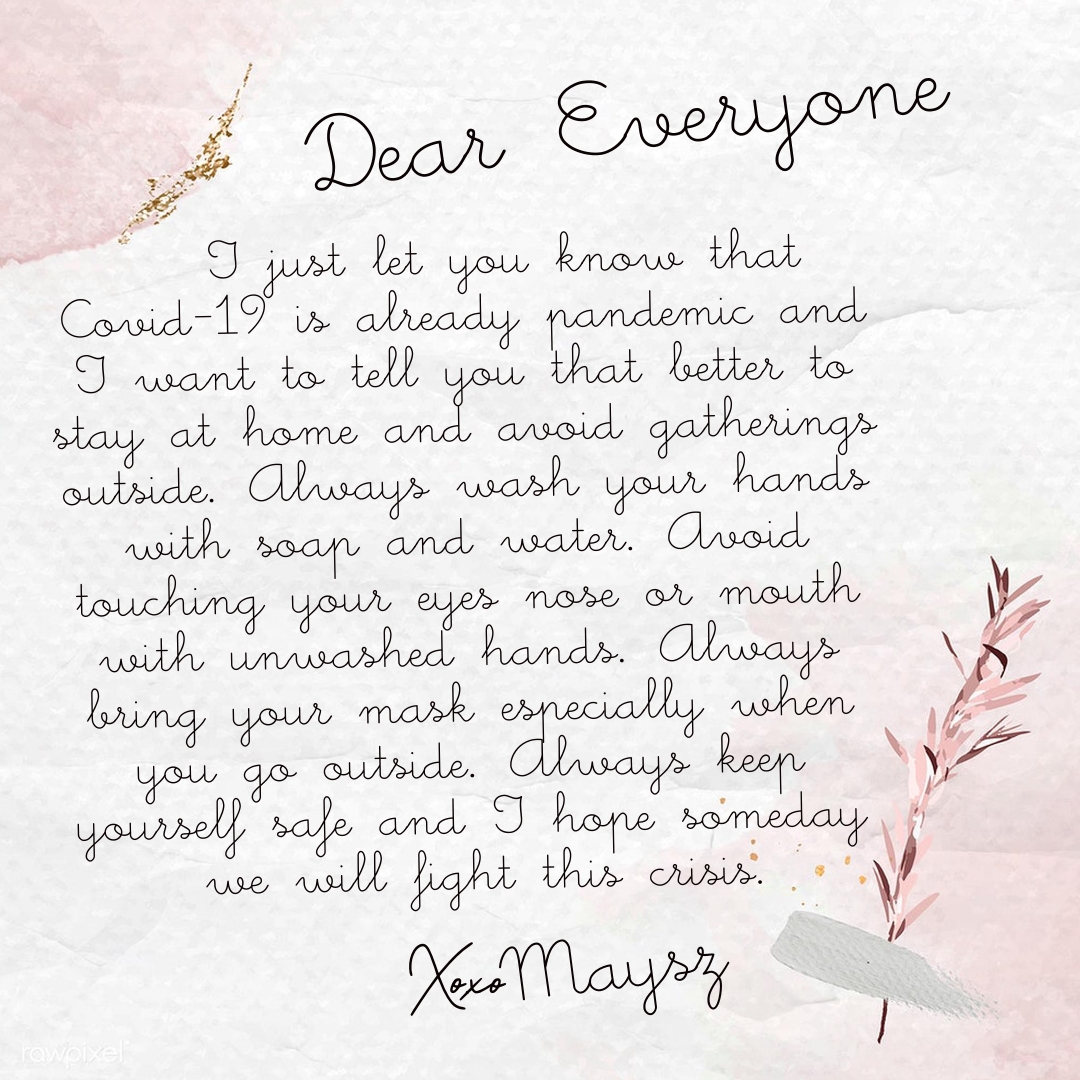 Dear Everyone
I just let you know that
Covid-19 is already pandemic and
I want to tell you that better to
stay at home and avoid gatherings
outside. Always wash your hands
with soap and water. Avoid
touching your eyes nose or mouth
with unwashed hands. Always
bring your mask especially when
you go outside. Always keep
yourself safe and I hope someday
we will fight this crisis.
XoxoMaysz
rawpixel